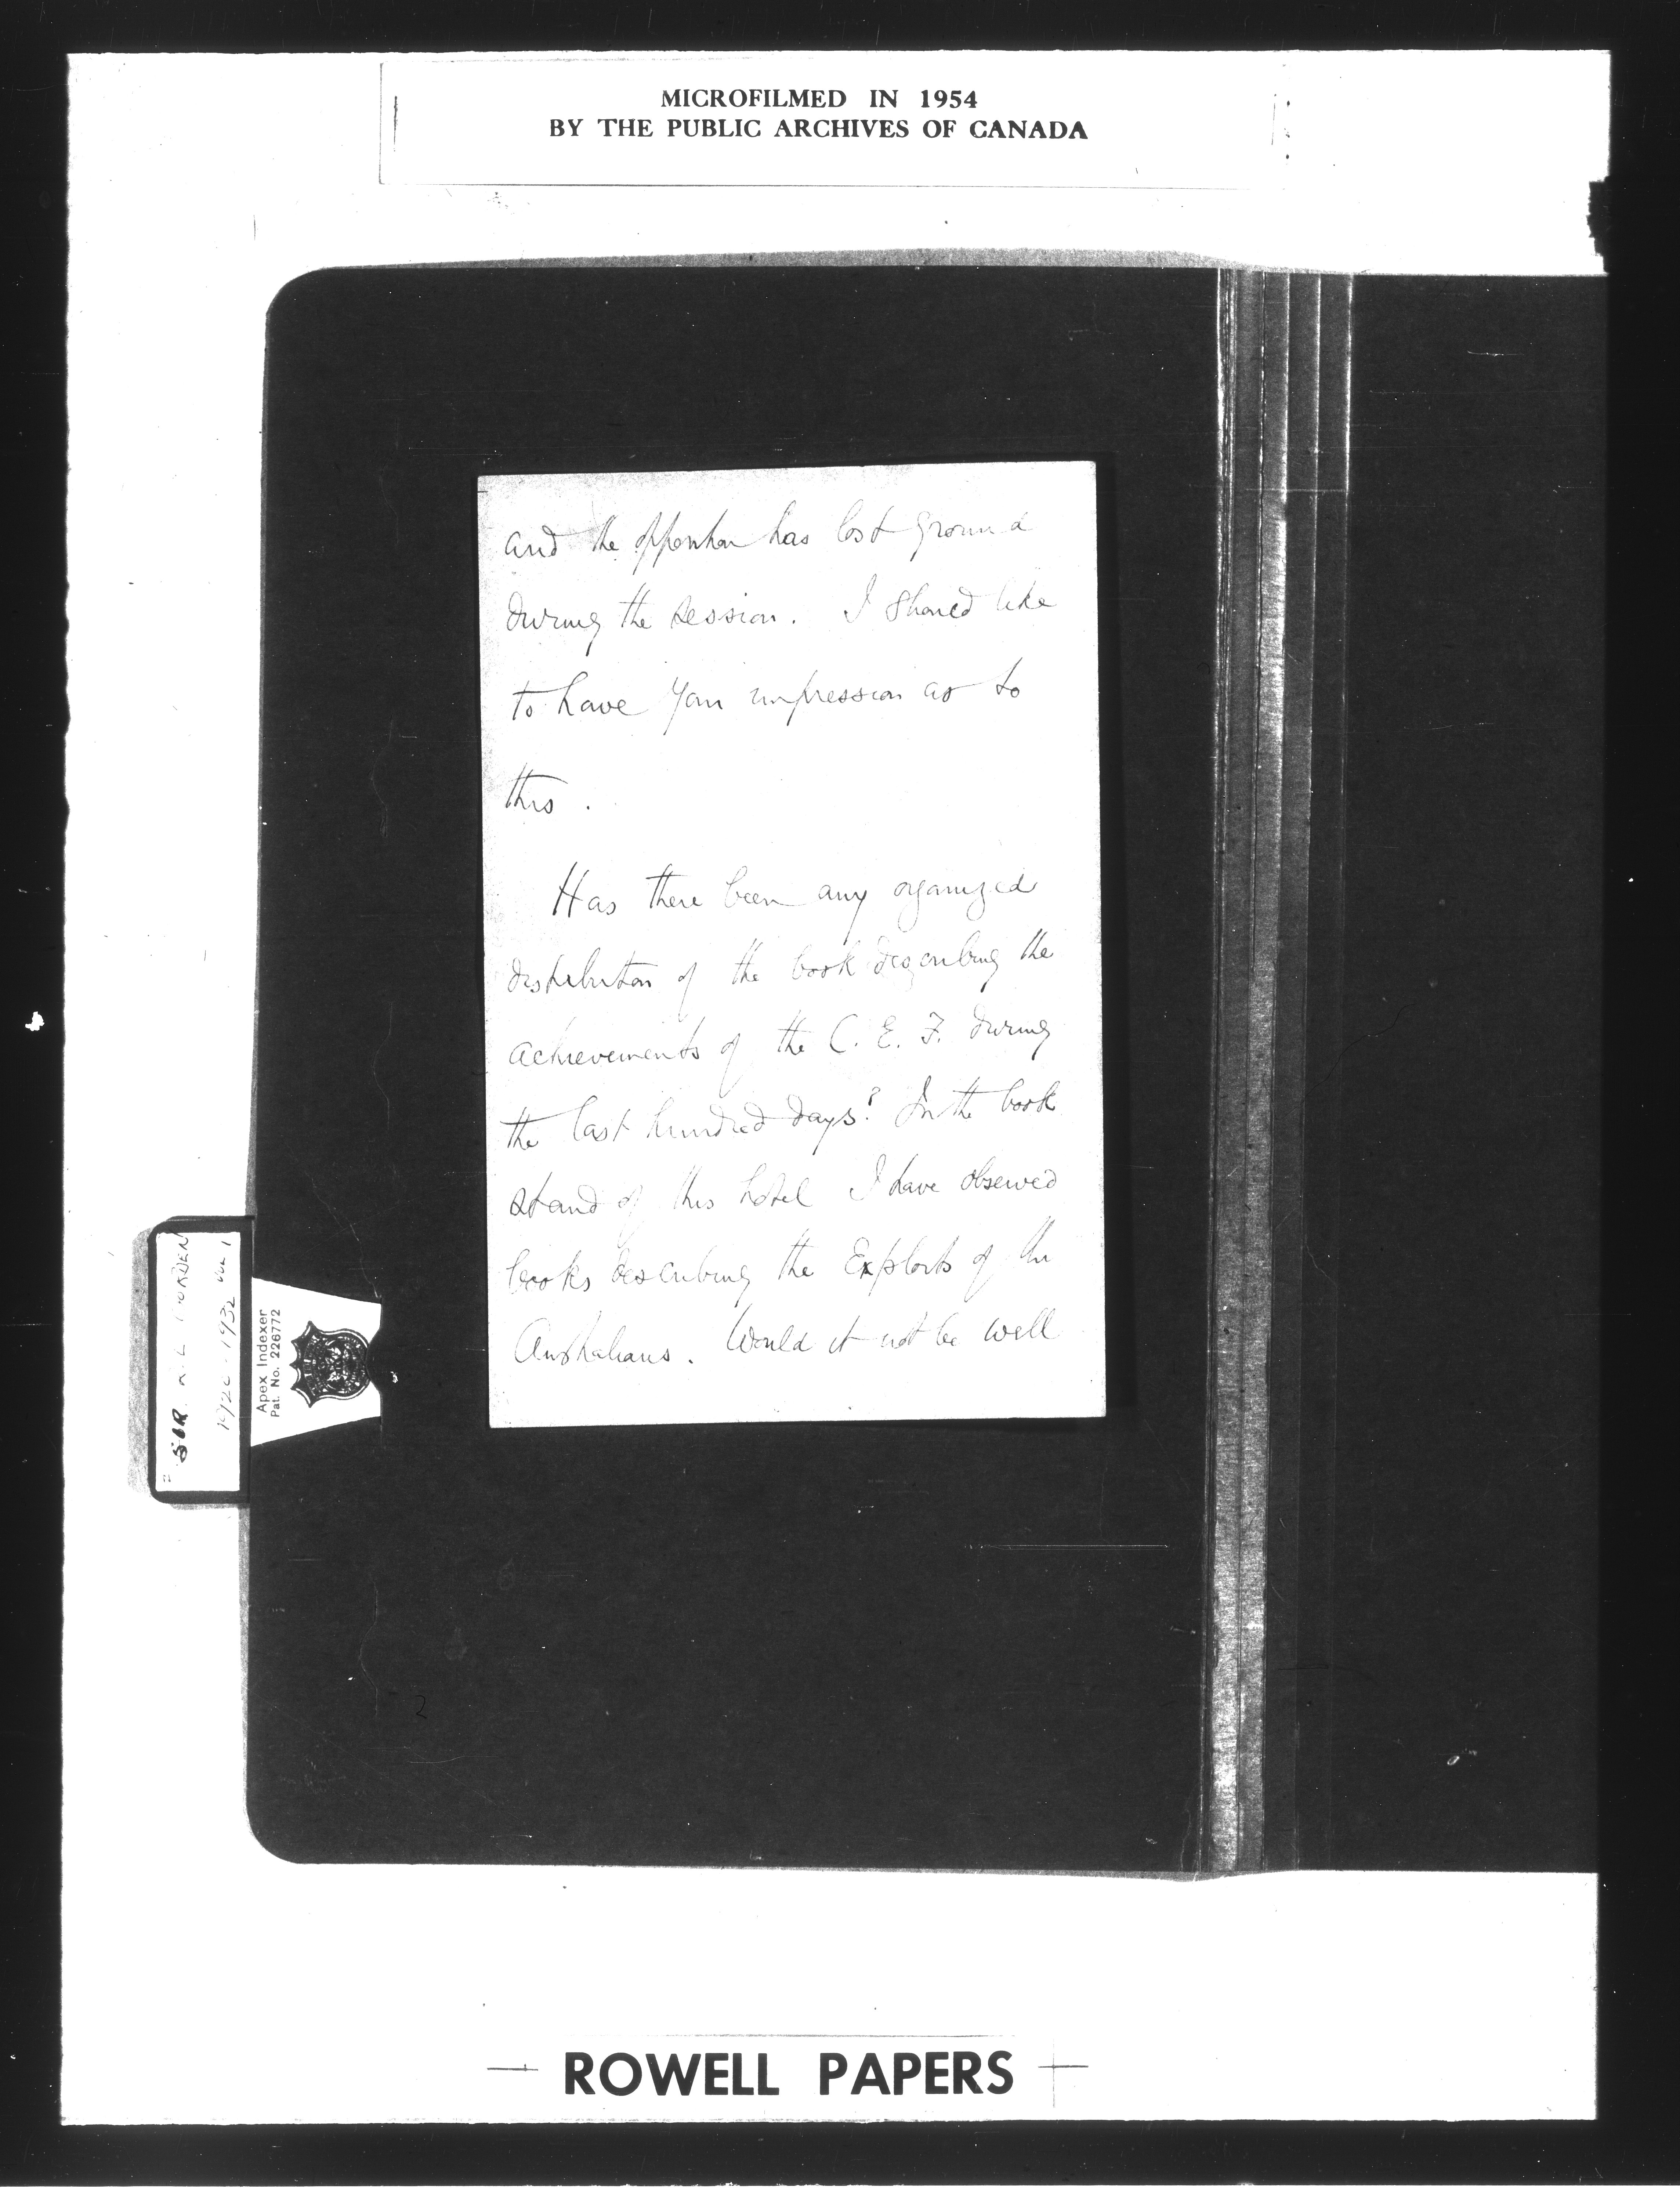 MICROFILMED IN 1954
BY THE PUBLIC ARCHIVES OF CANADA
and the opposition has lost ground
during the session. I should like
to have your impression as to
this.
Has there been any organized
distribution of the book describing the
achievements of the C. E. F. during
the last hundred days? In the book
stand of this hotel I have observed
books describing the Exploits of the
Australians. Would it not be well
SIR R. L. BORDEN
1920-1932 VOL 1
Apex Indexer
Pat. No. 226772
ROWELL PAPERS